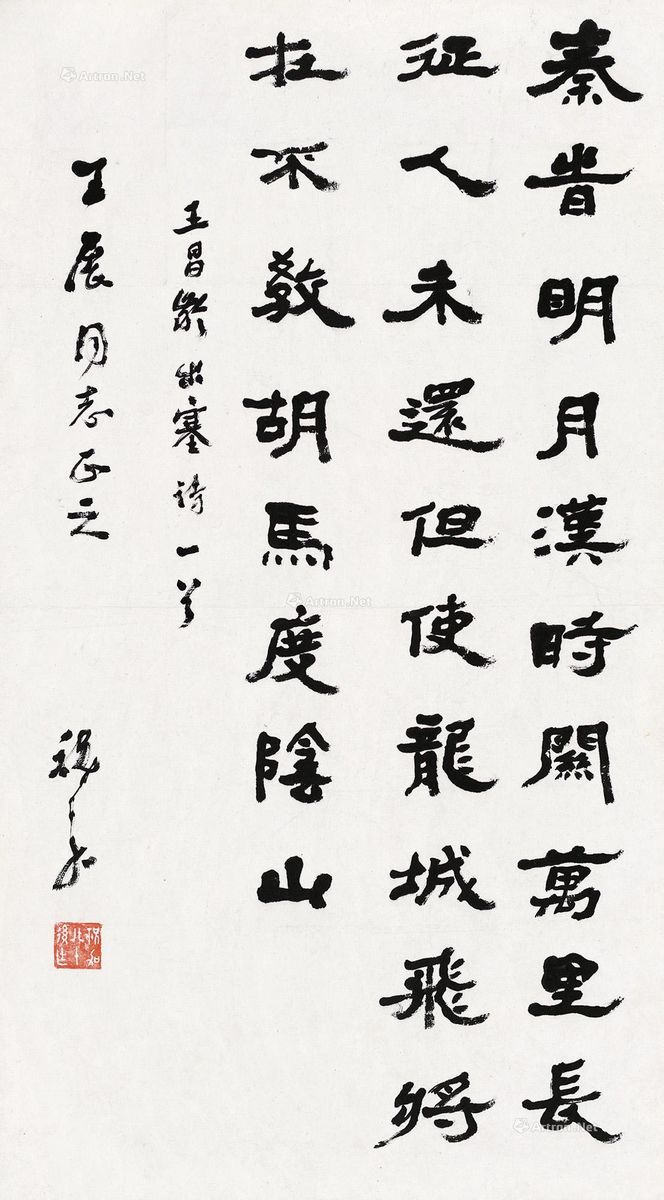 秦旹明月漢時關萬里長
征人未還但使龍城飛將
在不敎胡馬度陰山
王昌齡出塞詩一首
王展同志正之
祝嘉
Artron.Net
Artron.Net
Artron.Net